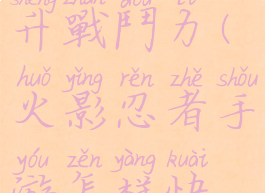 shēng zhàn dòu lì
升戰鬥力(
huǒ yǐng rěn zhě shǒu
火影忍者手
yóu zěn yàng kuài
遊怎樣快